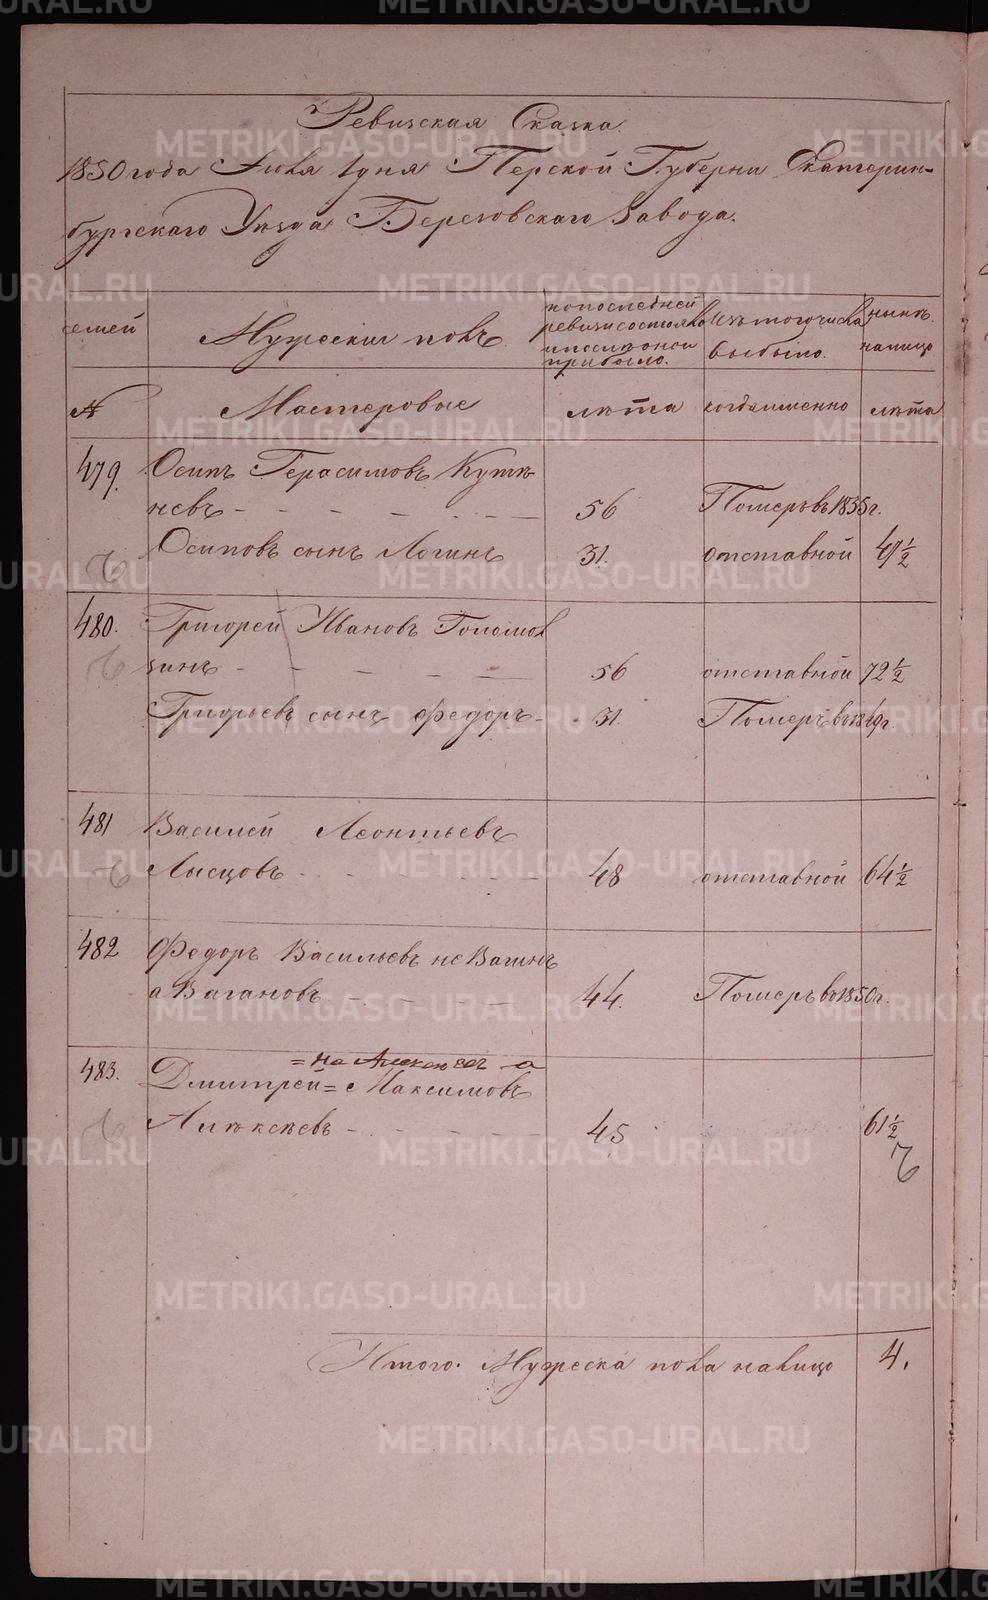 Ревизская Сказка.
1850 года Июля 1 дня Пермской Губернии Екатерин-
бургскаго Уезда Березовскаго Завода.
семей
Мужескии полъ.
по последней
ревизии состояло
и после оной
прибыло.
Изъ того числа
выбыло.
ныне
налицо
№
Мастеровые
лета
когда именно
лета
479.
Осипъ Герасимовъ
невъ
56
Померъ въ 1835 г.
Осиповъ сынъ Логинъ
31.
отставной
47½
480.
Григорей Ивановъ
зинъ
56
отставной
72½
Григорьевъ сынъ Федоръ
31.
Померъ въ г.
481
Василей Леонтьевъ
Лысцовъ
48
отставной
64½
482
Федоръ Васильевъ не Вагинъ
а Вагановъ
44.
Померъ въ 1850 г.
483.
= не Алексеевъ а
Дмитрей = Максимовъ
Алексеевъ
45
61½
Итого. Мужеска пола налицо
4.
METRIKI.GASO-URAL.RU